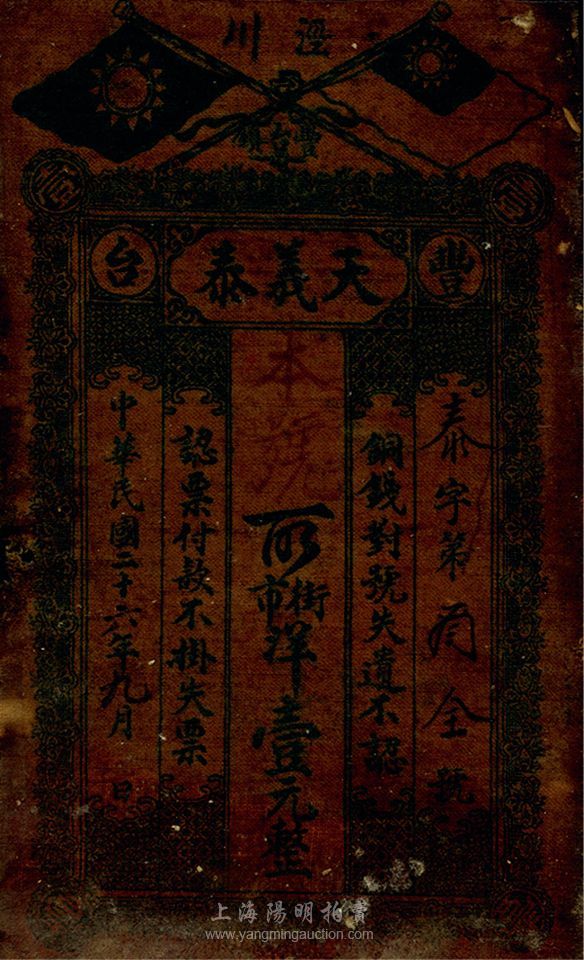 涇川
豐台
豐
天義泰
台
泰字第　全號
銅錢對號失遺不認
本號
市街洋壹元整
認票付款不掛失票
中華民國二十六年九月　日
上海陽明拍賣
www.yangmingauction.com